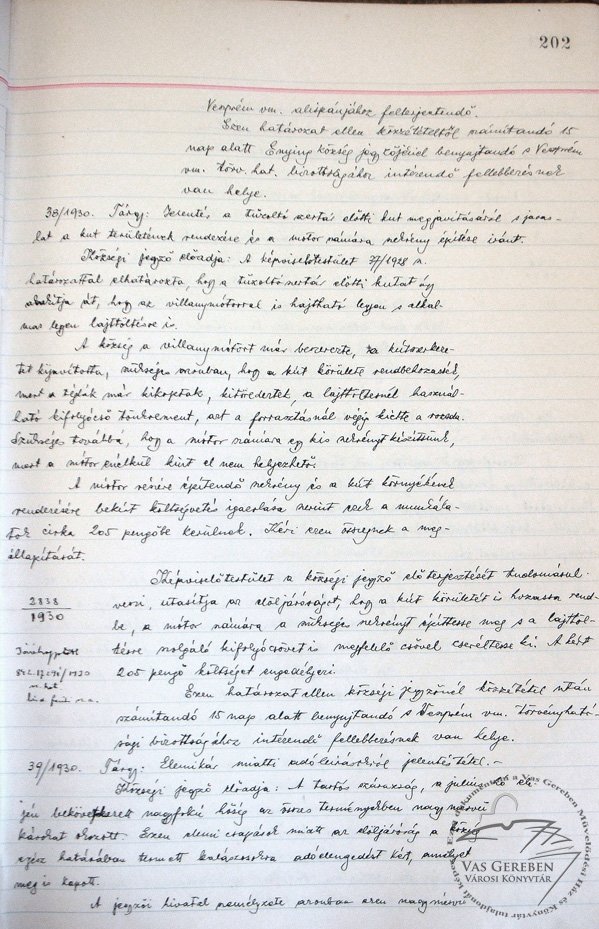 202
Veszprém vm. alispánjához felterjesztendő.
Ezen határozat ellen közzétételtől számítandó 15
nap alatt Enying község jegzőjénél benyujtandó s Veszprém
vm. törv. hat. bizottságához intézendő fellebbezésnek
van helye.
38/1930. Tárgy: Jelentés a tüzoltó szertár előtti kut megjavitásáról s javas-
lat a kut területének rendezése és a motor számára szekrény épitése iránt.
Községi jegyző előadja: A képviselőtestület 77/1928 sz.
határozattal elhatározta, hogy a tüzoltószertár előtti kutat úgy
alakitja át, hogy az villanymotorral is hajtható legyen s alkal-
mas legyen lajttöltésre is.
A község a villanymótort már beszerezte, a kútszerkeze-
tet kijavította, szükséges azonban, hogy a kút körülete rendbehozassék,
mert a téglák már kikoptak, kitöredeztek, a lajttöltésnél használ-
ható kifolyócső tönkrement, azt a forrasztásnál végig kiette a rozsda.
Szükséges továbbá, hogy a mótor számára egy kis szekrényt készittsünk,
mert a mótor enélkül kint el nem helyezhető.
A mótor részére épitendő szekrény és a kút környékének
rendezésére bekért költségvetés igazolása szerint ezek a munkála-
tok cirka 205 pengőbe kerülnek. Kéri ezen összegnek a meg-
állapitását.
Képviselőtestület a községi jegyző előterjesztését tudomásul
veszi, utasitja az elöljáróságot, hogy a kút körületét is hozassa rend-
be, a mótor számára a szükséges szekrényt épittesse meg s a lajttöl-
tésre szolgáló kifolyócsövet is megfelelő csővel cseréltesse ki. A kért
205 pengő költséget engedélyezi.
2838
1930
Jóváhagyta
Ezen határozat ellen községi jegyzőnél közzététel után
számitandó 15 nap alatt benyujtandó s Veszprém vm. törvényható-
sági bizottságához intézendő fellebbezésnek van helye.
39/1930. Tárgy: Elemikár miatti adóleirásokról jelentéstétel.-
Községi jegyző előadja: A tartós szárazság, a julius hó ele-
jén bekövetkezett nagyfokú hőség az összes terményekben nagymérvű
károkat okozott. Ezen elemi csapások miatt az elöljáróság a község
egész határában termett kalászosokra adóelengedést kért, amelyet
meg is kapott.
A jegyzői hivatal személyzete azonban ezen nagymérvű
Ezen dokumentum a Vas Gereben Művelődési Ház és Könyvtár tulajdonát képezi
VAS GEREBEN
VÁROSI KÖNYVTÁR